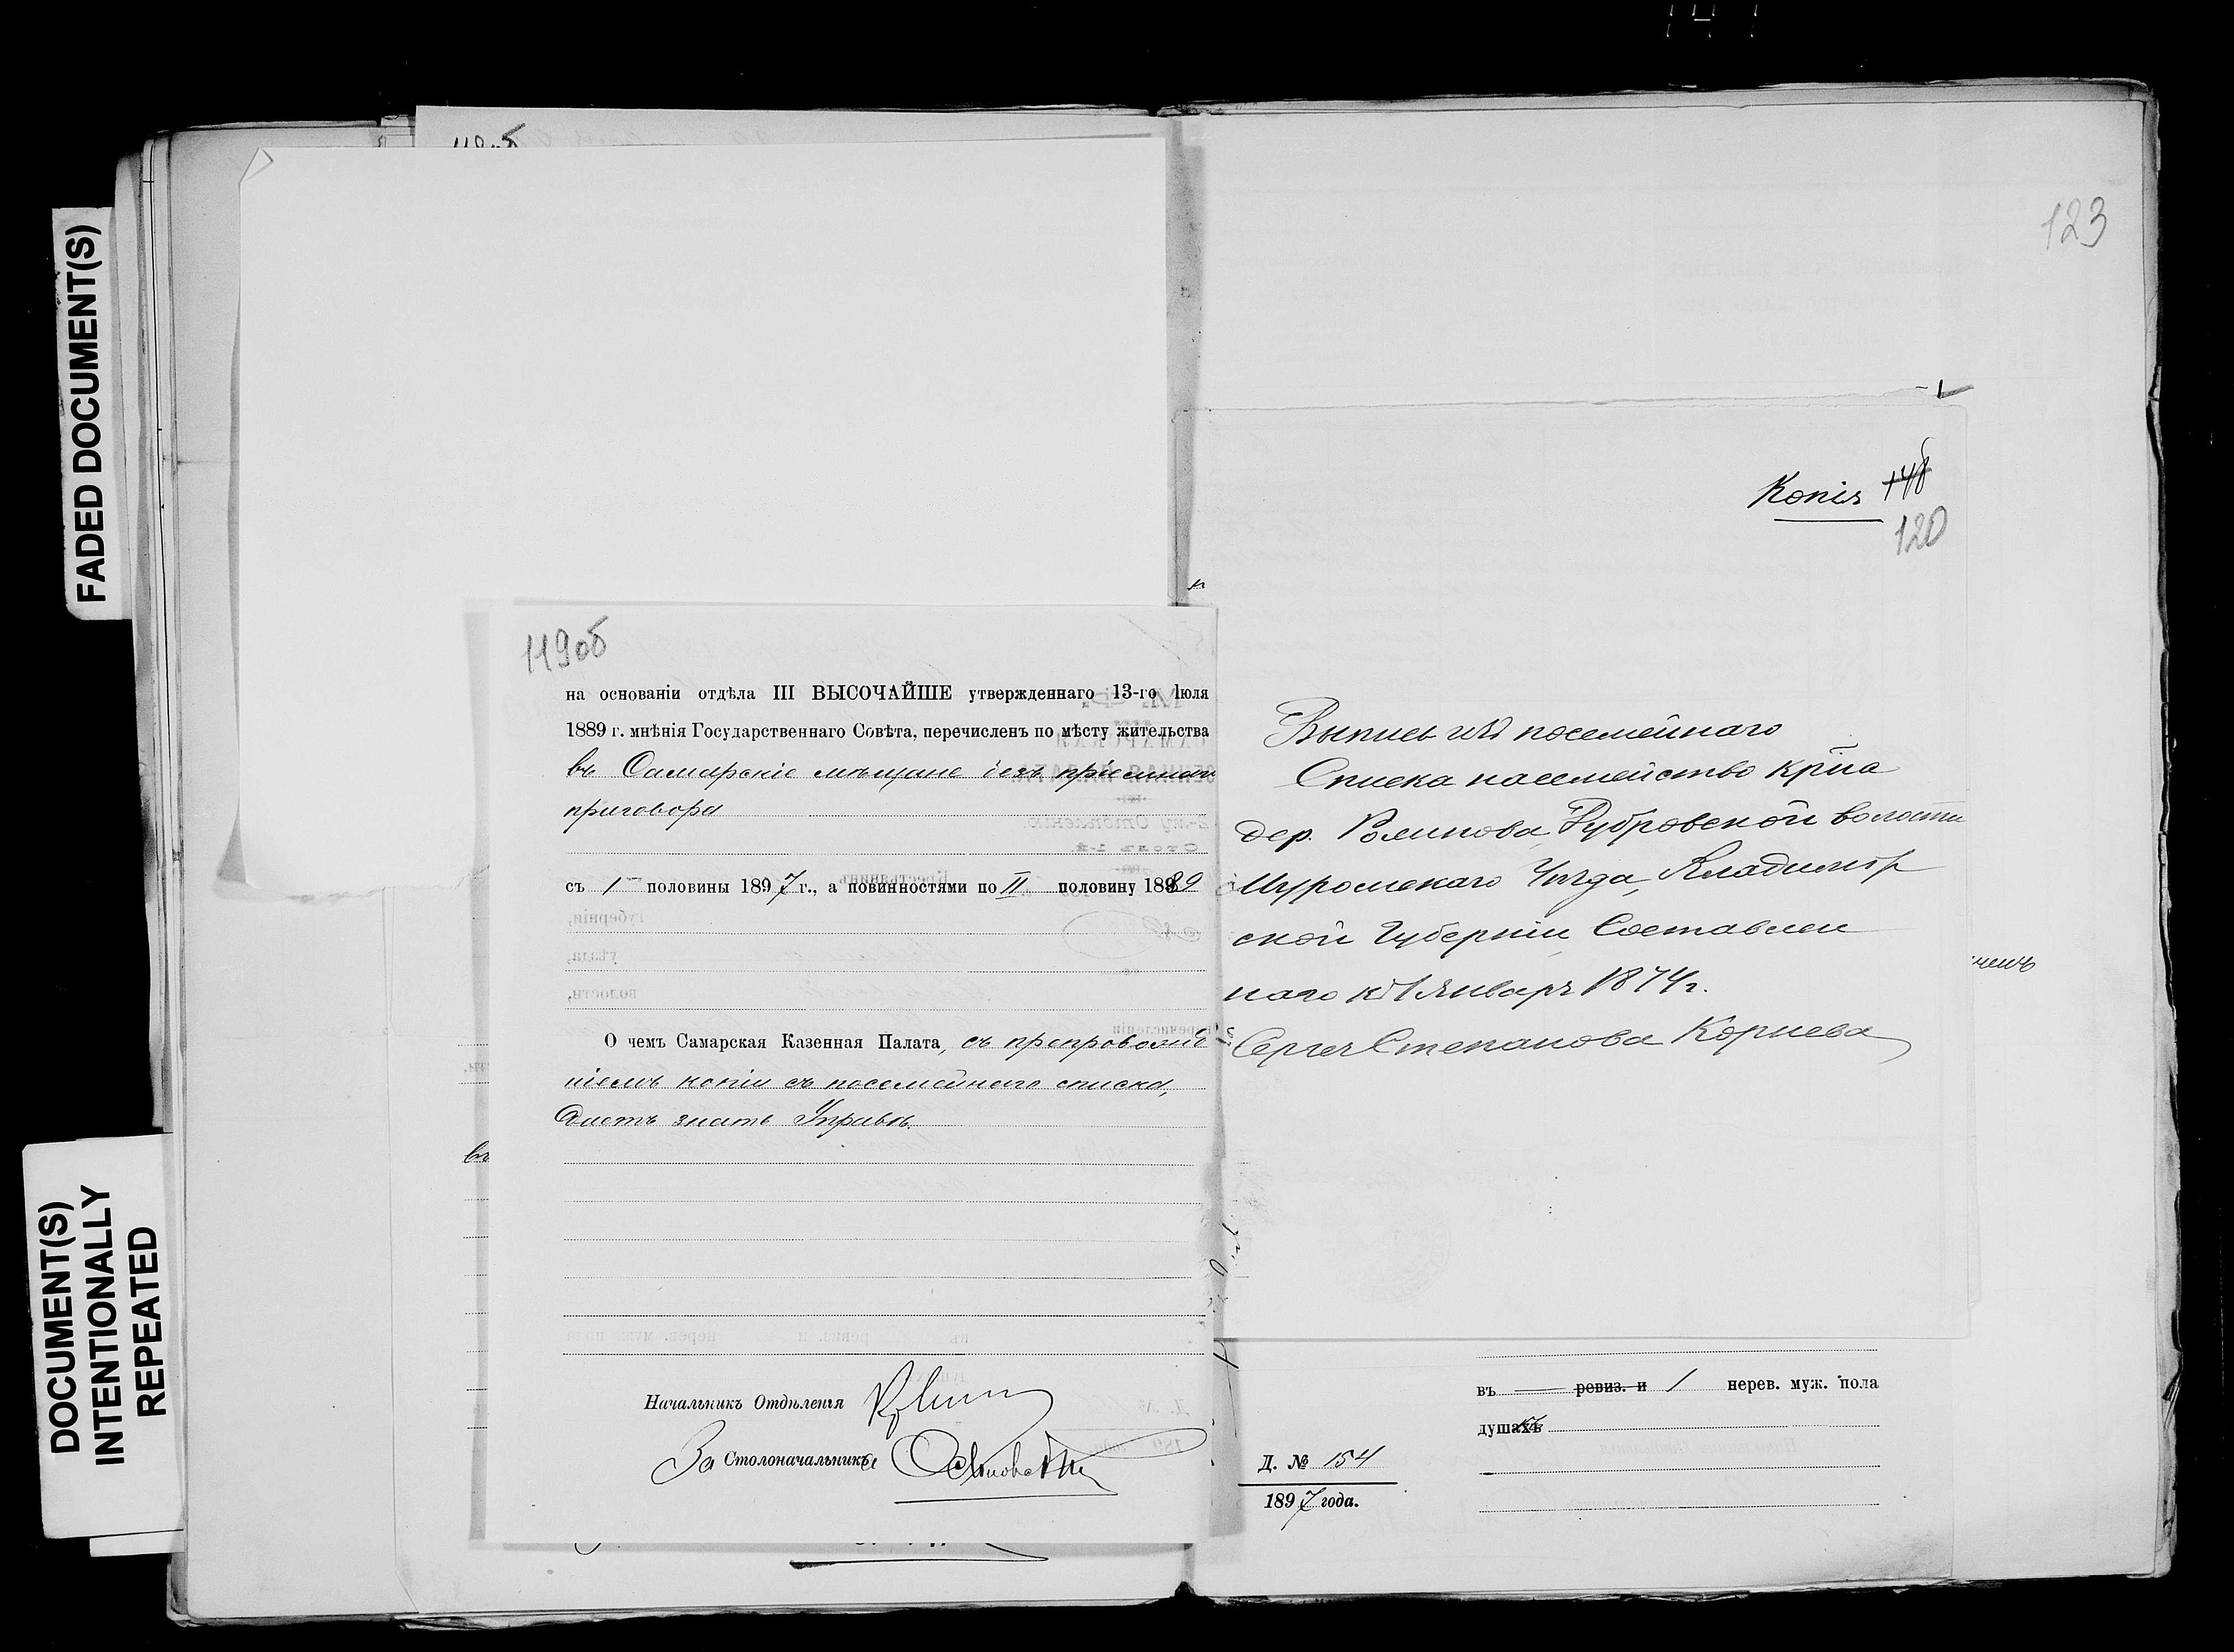 FADED DOCUMENT(S)
DOCUMENT(S)
INTENTIONALLY
REPEATED
119об
на основаніи отдѣла III ВЫСОЧАЙШЕ утвержденнаго 13-го Іюля
1889 г. мнѣнія Государственнаго Совѣта, перечисленъ по мѣсту жительства
въ Самарскіе мѣщане безъ пріемнаго
приговора
съ 1 половины 1897 г., а повинностями по II половину 1889
О чемъ Самарская Казенная Палата, съ препровожде
ніемъ копіи съ посемейнаго списка,
даетъ знать Управѣ.
Начальникъ Отдѣленія
За Столоначальника
123
Копія
120
Выпись изъ посемейнаго
Списка насемейство крна
дер. Волнинова, Дубровской волости
Муромскаго Уѣзда, Владимір
ской Губерніи Составлен
наго къ 1 Января 1874 г.
Сергея Степанова Корнева
въ ревиз. и 1 нерев. муж. пола
душахъ
Д. № 154
1897 года.